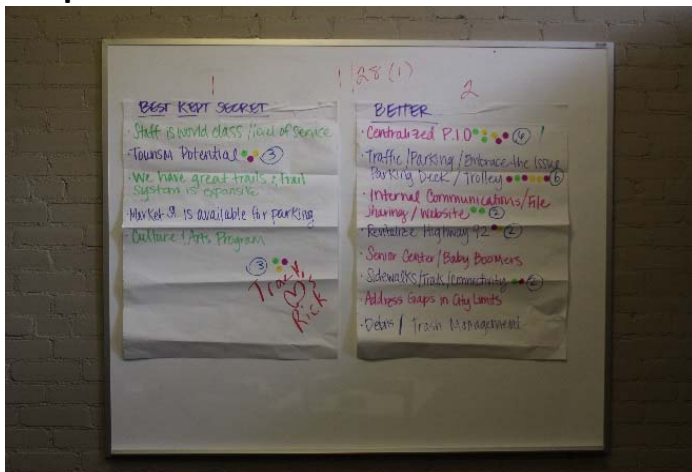 1
1
28 (1)
2
BEST KEPT SECRET
· Staff is world class / level of service
· Tourism Potential 3
· We have great trails & trail
system is expansive
· Market St. is available for parking
· Culture / Arts Program
3
Rick
BETTER
· Centralized P.I.O 4
· Traffic / Parking / Embrace the Issue
Parking Deck / Trolley 6
· Internal Communications / File
Sharing / Website 2
· Revitalize Highway 92 2
· Senior Center / Baby Boomers
· Sidewalks / Trails / Connectivity 2
· Address Gaps in City Limits
· Debris / Trash Management